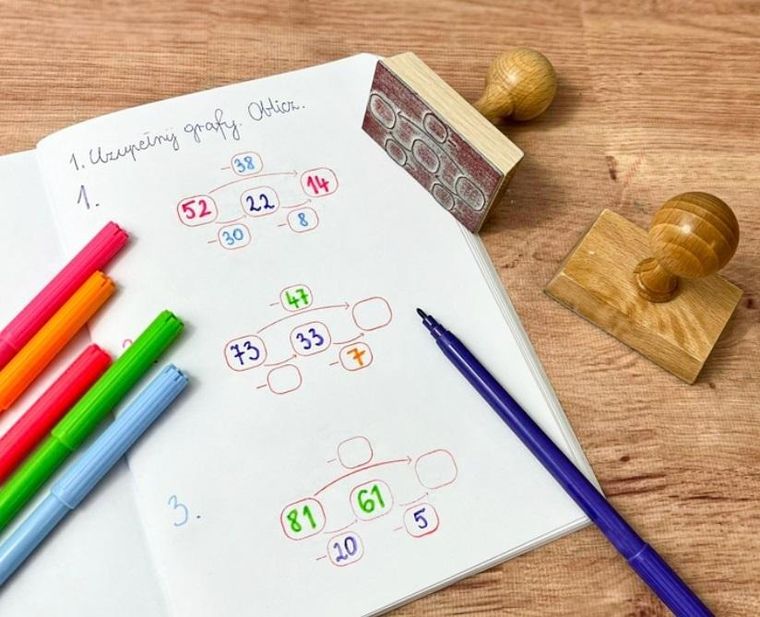 1. Uzupełnij grafy. Oblicz.
1.
- 38
52 22 14
- 30 - 8
- 47
73 33
- - 7
3.
-
81 61
- 20 - 5